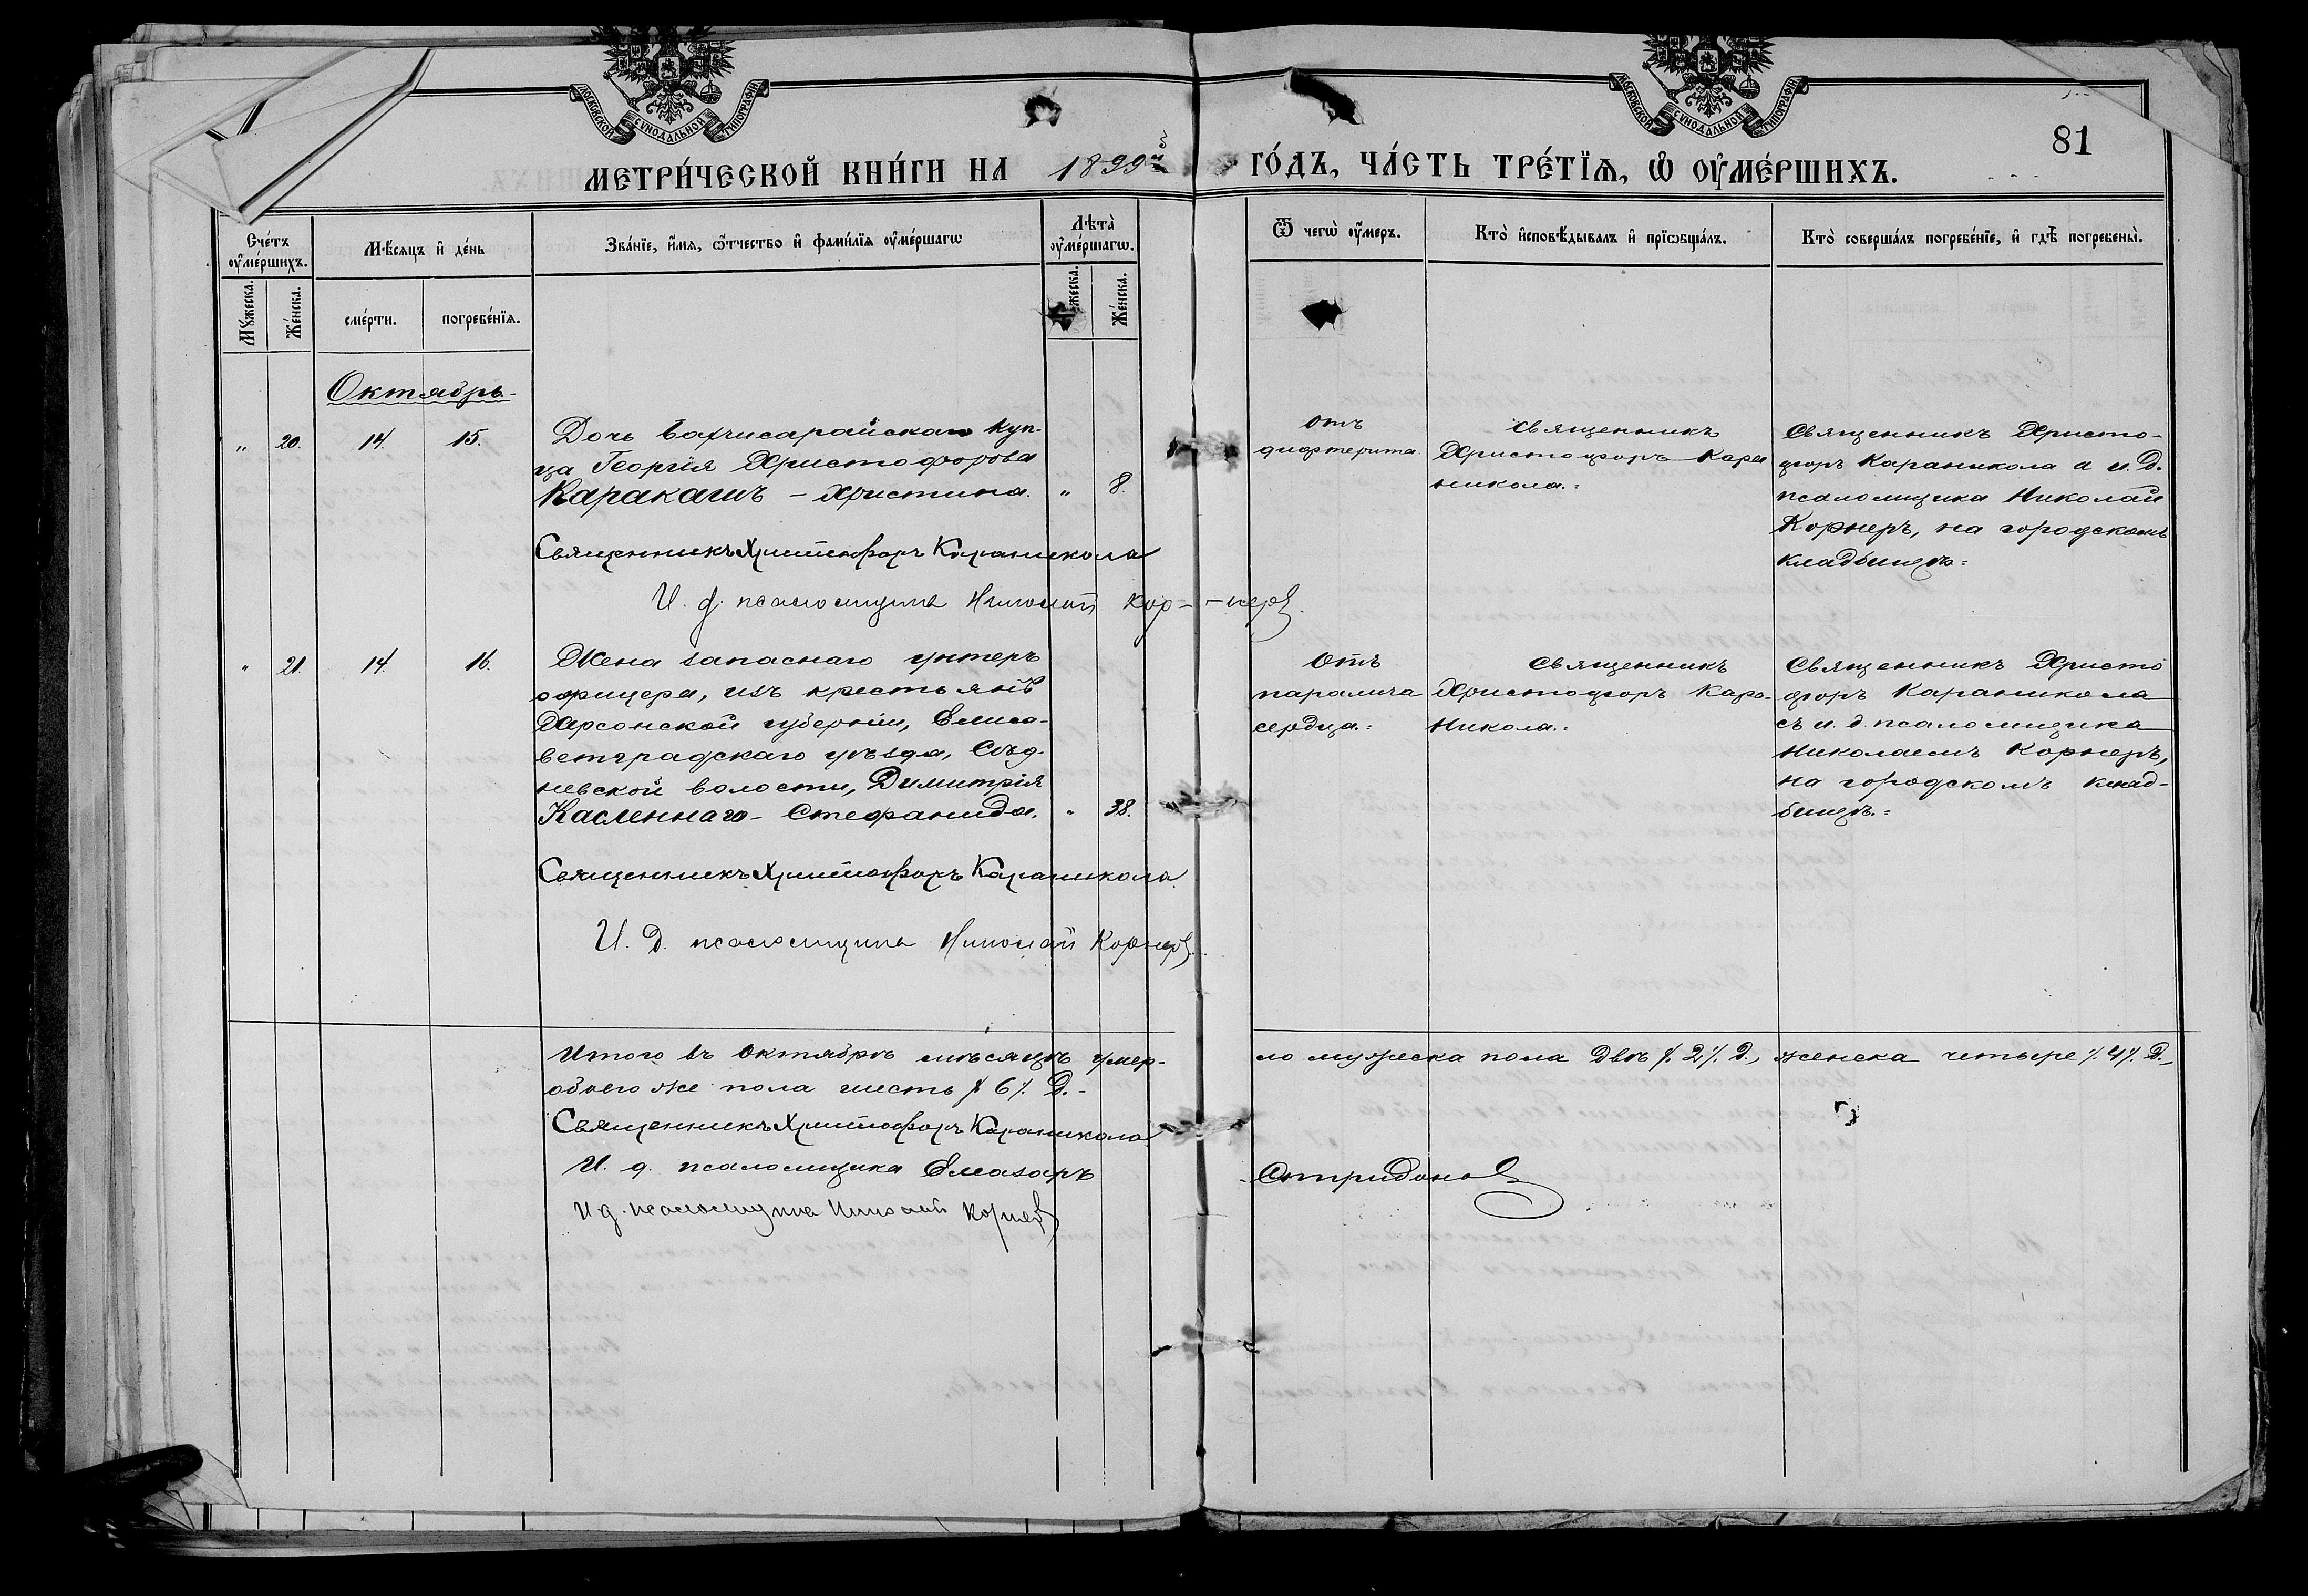 МОСКОВСКОЙ СѴНОДАЛЬНОЙ ТИПОГРАФІИ
МОСКОВСКОЙ СѴНОДАЛЬНОЙ ТИПОГРАФІИ
81
МЕТРИ́ЧЕСКОЙ КНИ́ГИ НА 1899й ГО́ДЪ, ЧА́СТЬ ТРЕ́ТЇѦ, Ѡ҆ ОУ҆МЕ́РШИХЪ.
Сче́тъ оу҆ме́ршихъ.
Мѣ́сѧцъ и҆ де́нь
Зва́нїе, и҆́мѧ, ѻ҆́тчество и҆ фами́лїѧ оу҆ме́ршагѡ
Лѣта̀ оу҆ме́ршагѡ.
Ѿ чегѡ̀ оу҆́меръ.
Кто̀ и҆сповѣ́дывалъ и҆ прїѡбща́лъ.
Кто̀ соверша́лъ погребе́нїе, и҆ гдѣ̀ погребены̀.
Мꙋ́жеска.
Же́нска.
сме́рти.
погребе́нїѧ.
Же́нска.
Октябрь.
„ 20. 14. 15.
Дочь бахчисарайскаго куп-
ца Георгія Христофорова
Каракашъ – Христина. „ 8.
отъ
дифтерита.
священникъ
Христофоръ Кара
никола.
Священникъ Христо-
форъ Караникола и и. д.
псаломщика Николай
Корнеръ, на городскомъ
кладбищѣ.
Священникъ Христофоръ Караникола
И. д. псаломщика Николай Кор--неръ.
„ 21. 14. 16.
Жена запаснаго унтеръ
офицера, изъ крестьянъ
Херсонской губерніи, Елиса-
ветградскаго уѣзда,
невской волости, Димитрія
Касленнаго – Стефанида. „ 38.
отъ
паралича
сердца.
священникъ
Христофоръ Кара-
никола.
Священникъ Христо
форъ Караникола
съ и. д. псаломщика
Николаемъ Корнеръ,
на городскомъ клад-
бищѣ.
Священникъ Христофоръ Караникола
И. д. псаломщика Николай Корнеръ.
Итого въ октябрѣ мѣсяцѣ умер-ло мужеска пола двѣ /. 2 /. д., женска четыре /. 4 /. д.,
обоего же пола шесть /. 6 /. д.
Священникъ Христофоръ Караникола
И. д. псаломщика Елеазаръ Спиридоновъ
И. д. псаломщика Николай Корнеръ